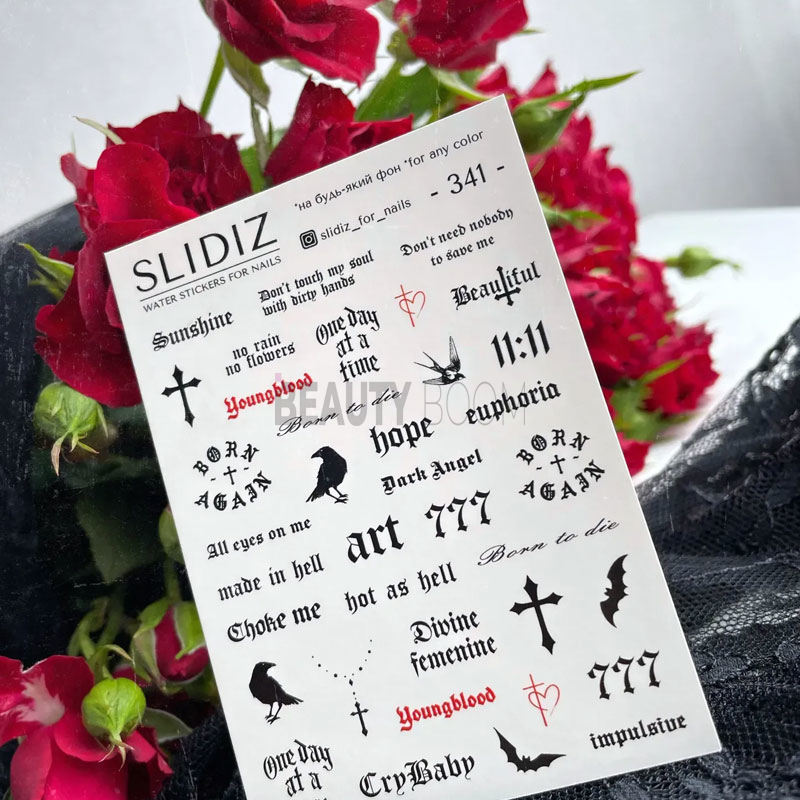 *на будь-який фон *for any color
SLIDIZ
WATER STICKERS FOR NAILS
slidiz_for_nails
- 341 -
Don't touch my soul
with dirty hands
Don't need nobody
to save me
Sunshine
no rain
no flowers
One day
at a
time
Beautiful
11:11
Youngblood
BEAUTY BOOM
Born to die
hope
euphoria
BORN
AGAIN
Dark Angel
BORN
AGAIN
All eyes on me
art
777
Born to die
made in hell
hot as hell
Choke me
Divine
femenine
Youngblood
777
impulsive
One day
at a
CryBaby